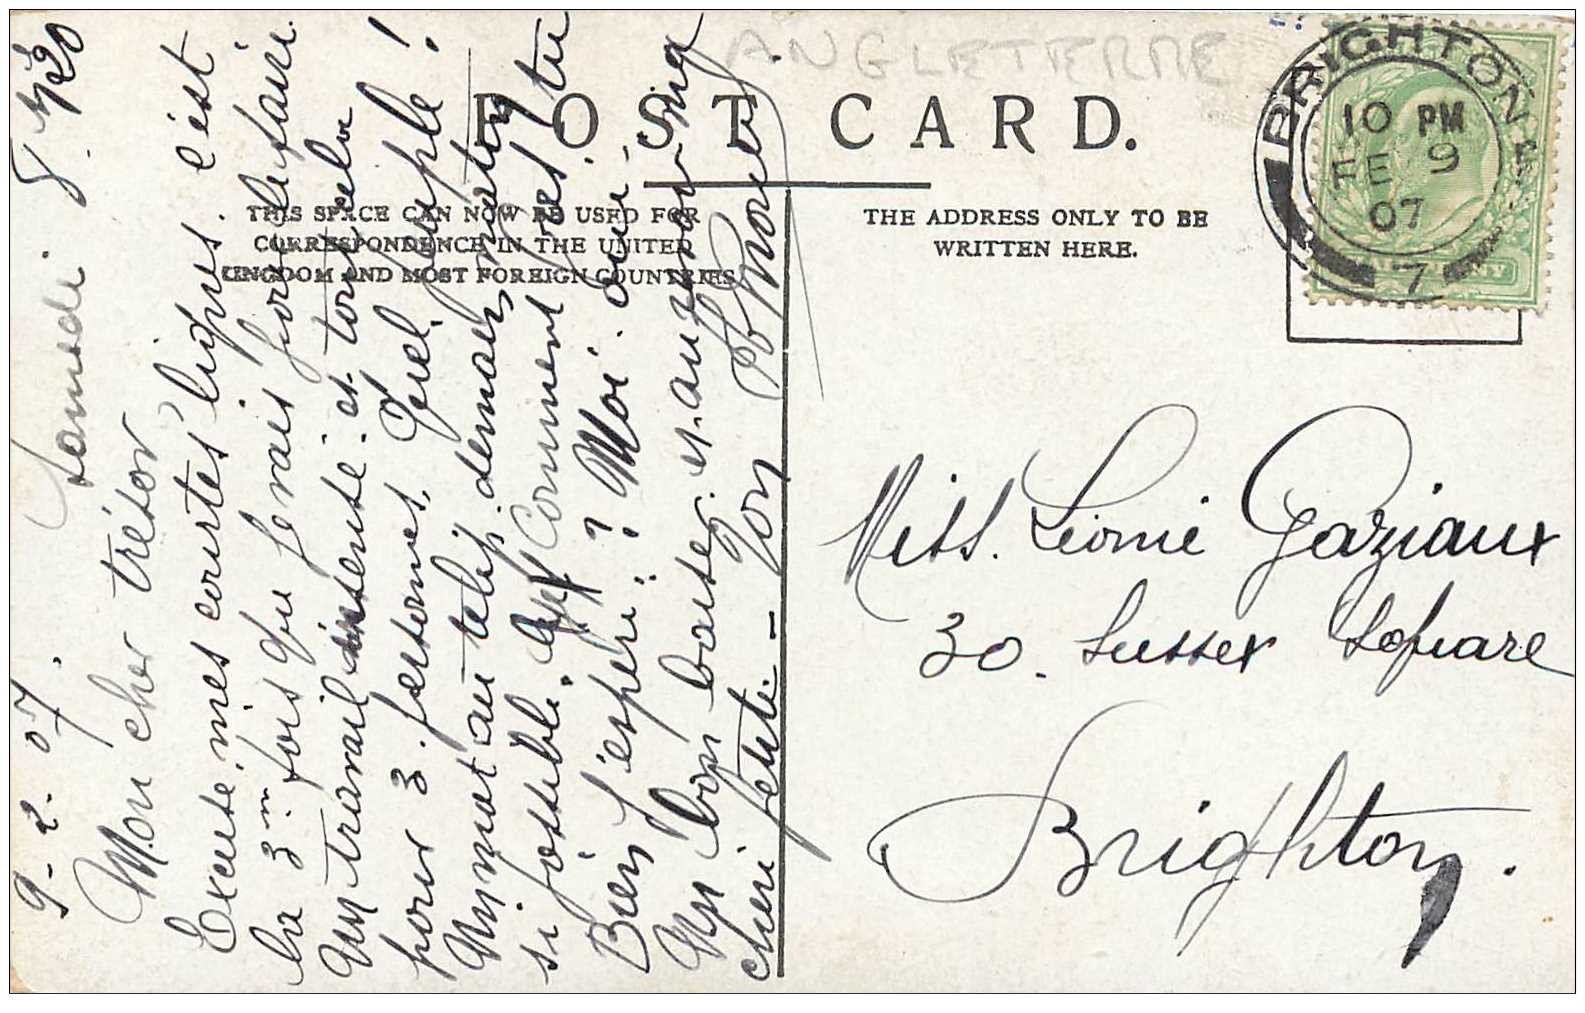 ANGLETERRE
POST CARD.
THIS SPACE CAN NOW BE USED FOR
CORRESPONDENCE IN THE UNITED
KINGDOM AND MOST FOREIGN COUNTRIES
THE ADDRESS ONLY TO BE
WRITTEN HERE.
BRIGHTON
10 PM
FE 9
07
7
9-2-07. Samedi 8.
Mon cher trésor
Excuse, mes courtes lignes. c'est
la 3me fois que je vais pour le faire.
Un travail insensé et tout cela
pour 3 personnes, quel peuple!
Un mot au
si possible. Comment vas tu
Bien j'espère? Moi. oui.
Un bon baiser et au revoir ma
chérie petite - Ton
Miss. Léonie Gaziaux
30. Sussex Square
Brighton.